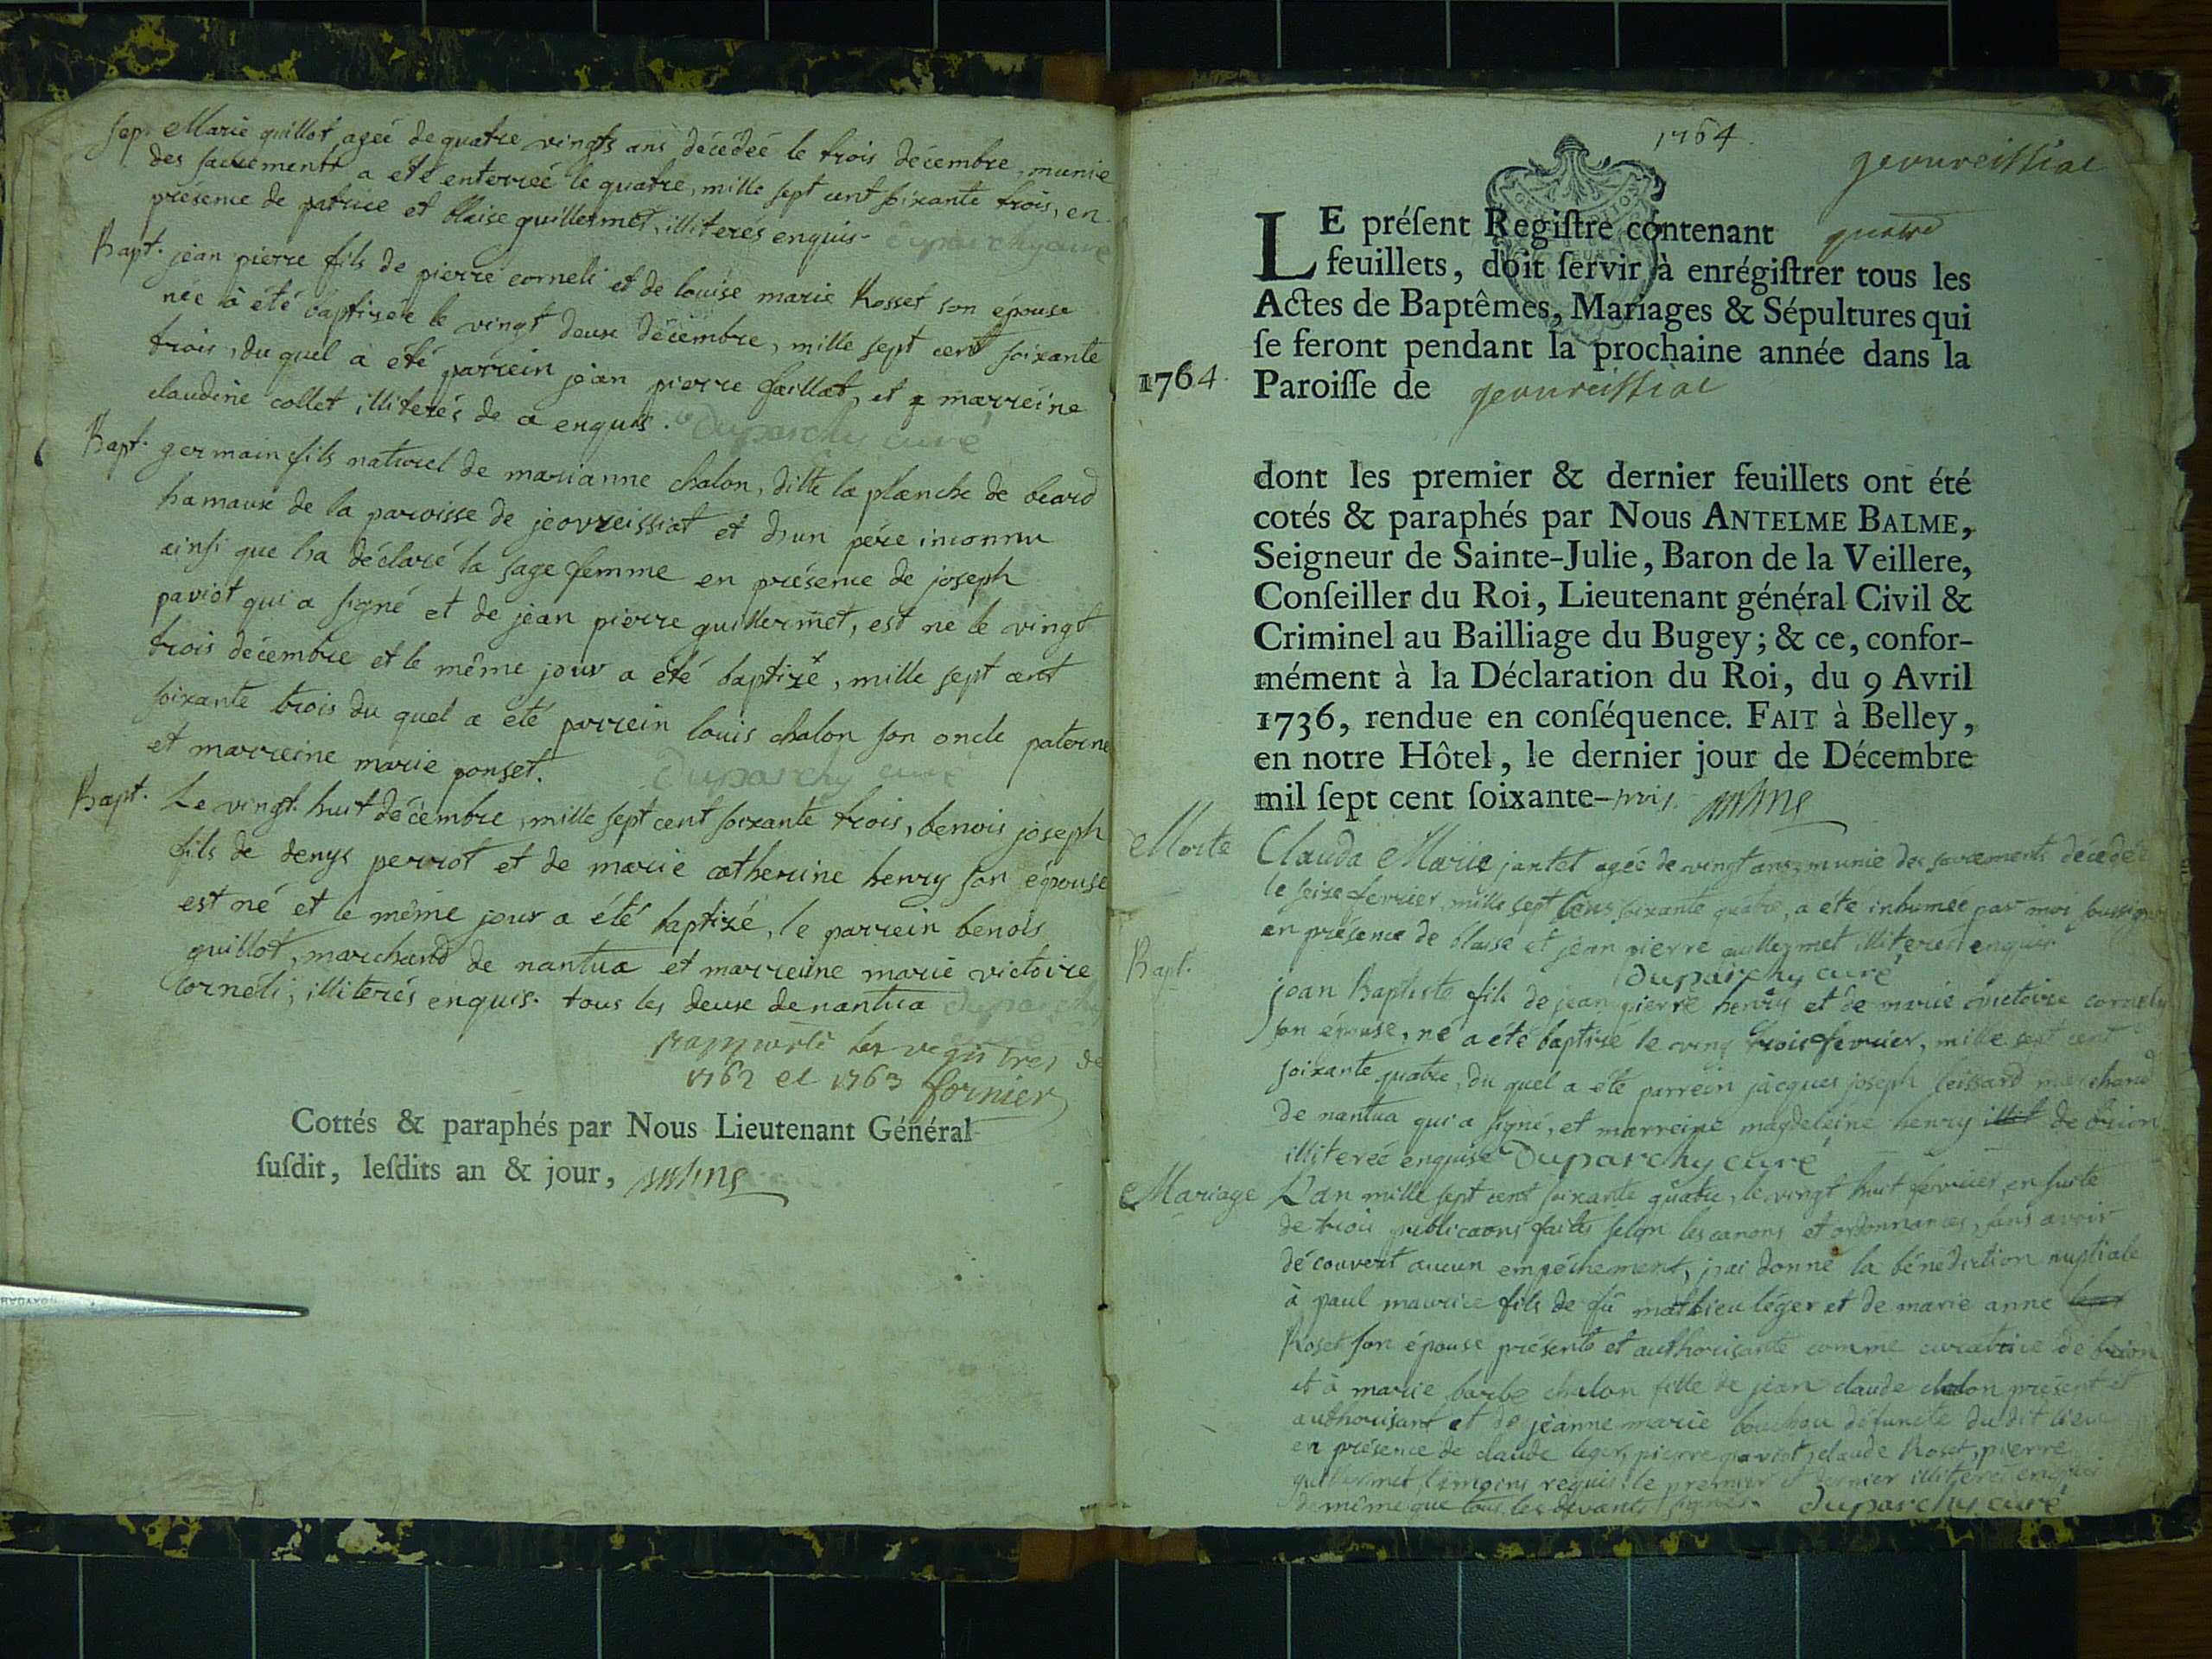 sep. Marie guillot agéé de quatre vingts ans décédéé le trois décembre, munie
des sacrements a eté enterréé le quatre, mille sept cent soixante trois, en
présence de patrice et blaise guillermet, illiterés enquis. duparchy curé
Bapt. jean pierre fils de pierre corneli et de louise marie Rosset son épouse
née à été baptiséé le vingt deux décembre, mille sept cent soixante
trois, du quel à eté parrein jean pierre faillat, et marreine
claudine collet illiterés de a enquis. Duparchy curé
Bapt. germain fils naturel de marianne chalon, ditte la planche de beard
hamaux de la paroisse de jeovreissiat et d'un pére inconnu
ainsi que la déclaré la sage femme en présence de joseph
paviot qui a signé et de jean pierre guillermet, est né le vingt
trois décembre et le même jour a été baptizé, mille sept cent
soixante trois du quel a eté parrein louis chalon son oncle paterne
et marreine marie ponset. Duparchy curé
Bapt. Le vingt huit décembre, mille sept cent soixante trois, benois joseph
fils de denys perrot et de marie catherine henry son épouse
est né et le même jour a été baptizé, le parrein benois
guillot, marchand de nantua et marreine marie victoire
Cornéli, illiterés enquis. tous les deux de nantua duparchy
rapporté les registres de
1762 et 1763 fornier
Cottés & paraphés par Nous Lieutenant Général
ſuſdit, leſdits an & jour,
1764.
geovreissiat
LE préſent Regiſtre contenant quatre
feuillets, doit ſervir à enrégiſtrer tous les
Actes de Baptêmes, Mariages & Sépultures qui
ſe feront pendant la prochaine année dans la
1764. Paroiſſe de geovreissiat
dont les premier & dernier feuillets ont été
cotés & paraphés par Nous ANTELME BALME,
Seigneur de Sainte-Julie, Baron de la Veillere,
Conſeiller du Roi, Lieutenant général Civil &
Criminel au Bailliage du Bugey; & ce, confor-
mément à la Déclaration du Roi, du 9 Avril
1736, rendue en conſéquence. FAIT à Belley,
en notre Hôtel, le dernier jour de Décembre
mil ſept cent ſoixante-trois.
Morte Clauda Marie jantet agéé de vingt ans munie des sacrements décédéé
le seize fevrier mille sept cens soixante quatre, a été inhumée par moi soussigné
en présence de blaise et jean pierre guillermet illiterés enquis
duparchy curé
Bapt. jean Baptiste fils de jean pierre henry et de marie victoire cornely
son épouse, né a été baptisé le vingt trois février, mille sept cent
soixante quatre, du quel a eté parrein jacques joseph leissard marchand
de nantua qui a signé, et marreine magdeleine henry de brion
illiteréé enquise Duparchy curé
Mariage L'an mille sept cent soixante quatre, le vingt huit février, en suite
de trois publicaons faites selon les canons et ordonnances, sans avoir
découvert aucun empéchement, j'ai donné la bénédiction nuptiale
à paul maurice fils de fû mathieu léger et de marie anne
Roset son épouse présente et authorisante comme curatrice de brion
et à marie barbe chalon fille de jean claude chalon présent et
authorisant et de jeanne marie bouchou défuncte du dit lieu
en présence de claude leger, pierre paviot, claude Roset, pierre
guillermet témoins requis, le premier et dernier illiterés enquis
de même que tous les devants signés. duparchy curé